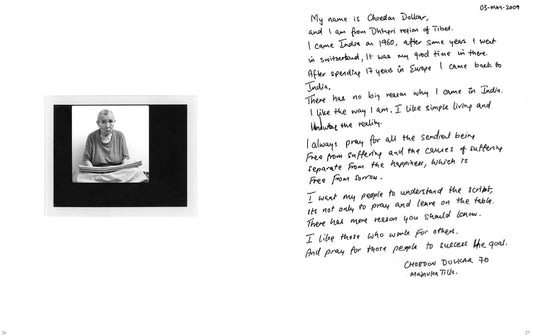 03-MAR-2009
My name is Choedon Dolkar,
and I am from Dhhpri region of Tibet.
I came India on 1960, after some years I went
in switzerland, It was my good time in there.
After spending 17 years in Europe I came back to
India.
There has no big reason why I came in India.
I like the way I am, I like simple living and
the reality.
I always pray for all the sendient being
Free from suffering and the causes of suffering
separate from the happiness, which is
Free from sorrow.
I want my people to understand the script,
its not only to pray and leave on the table.
There has more reason you should know.
I like those who work for others.
And pray for those people to success the goal.
CHOEDON DOLKAR 70
26
27